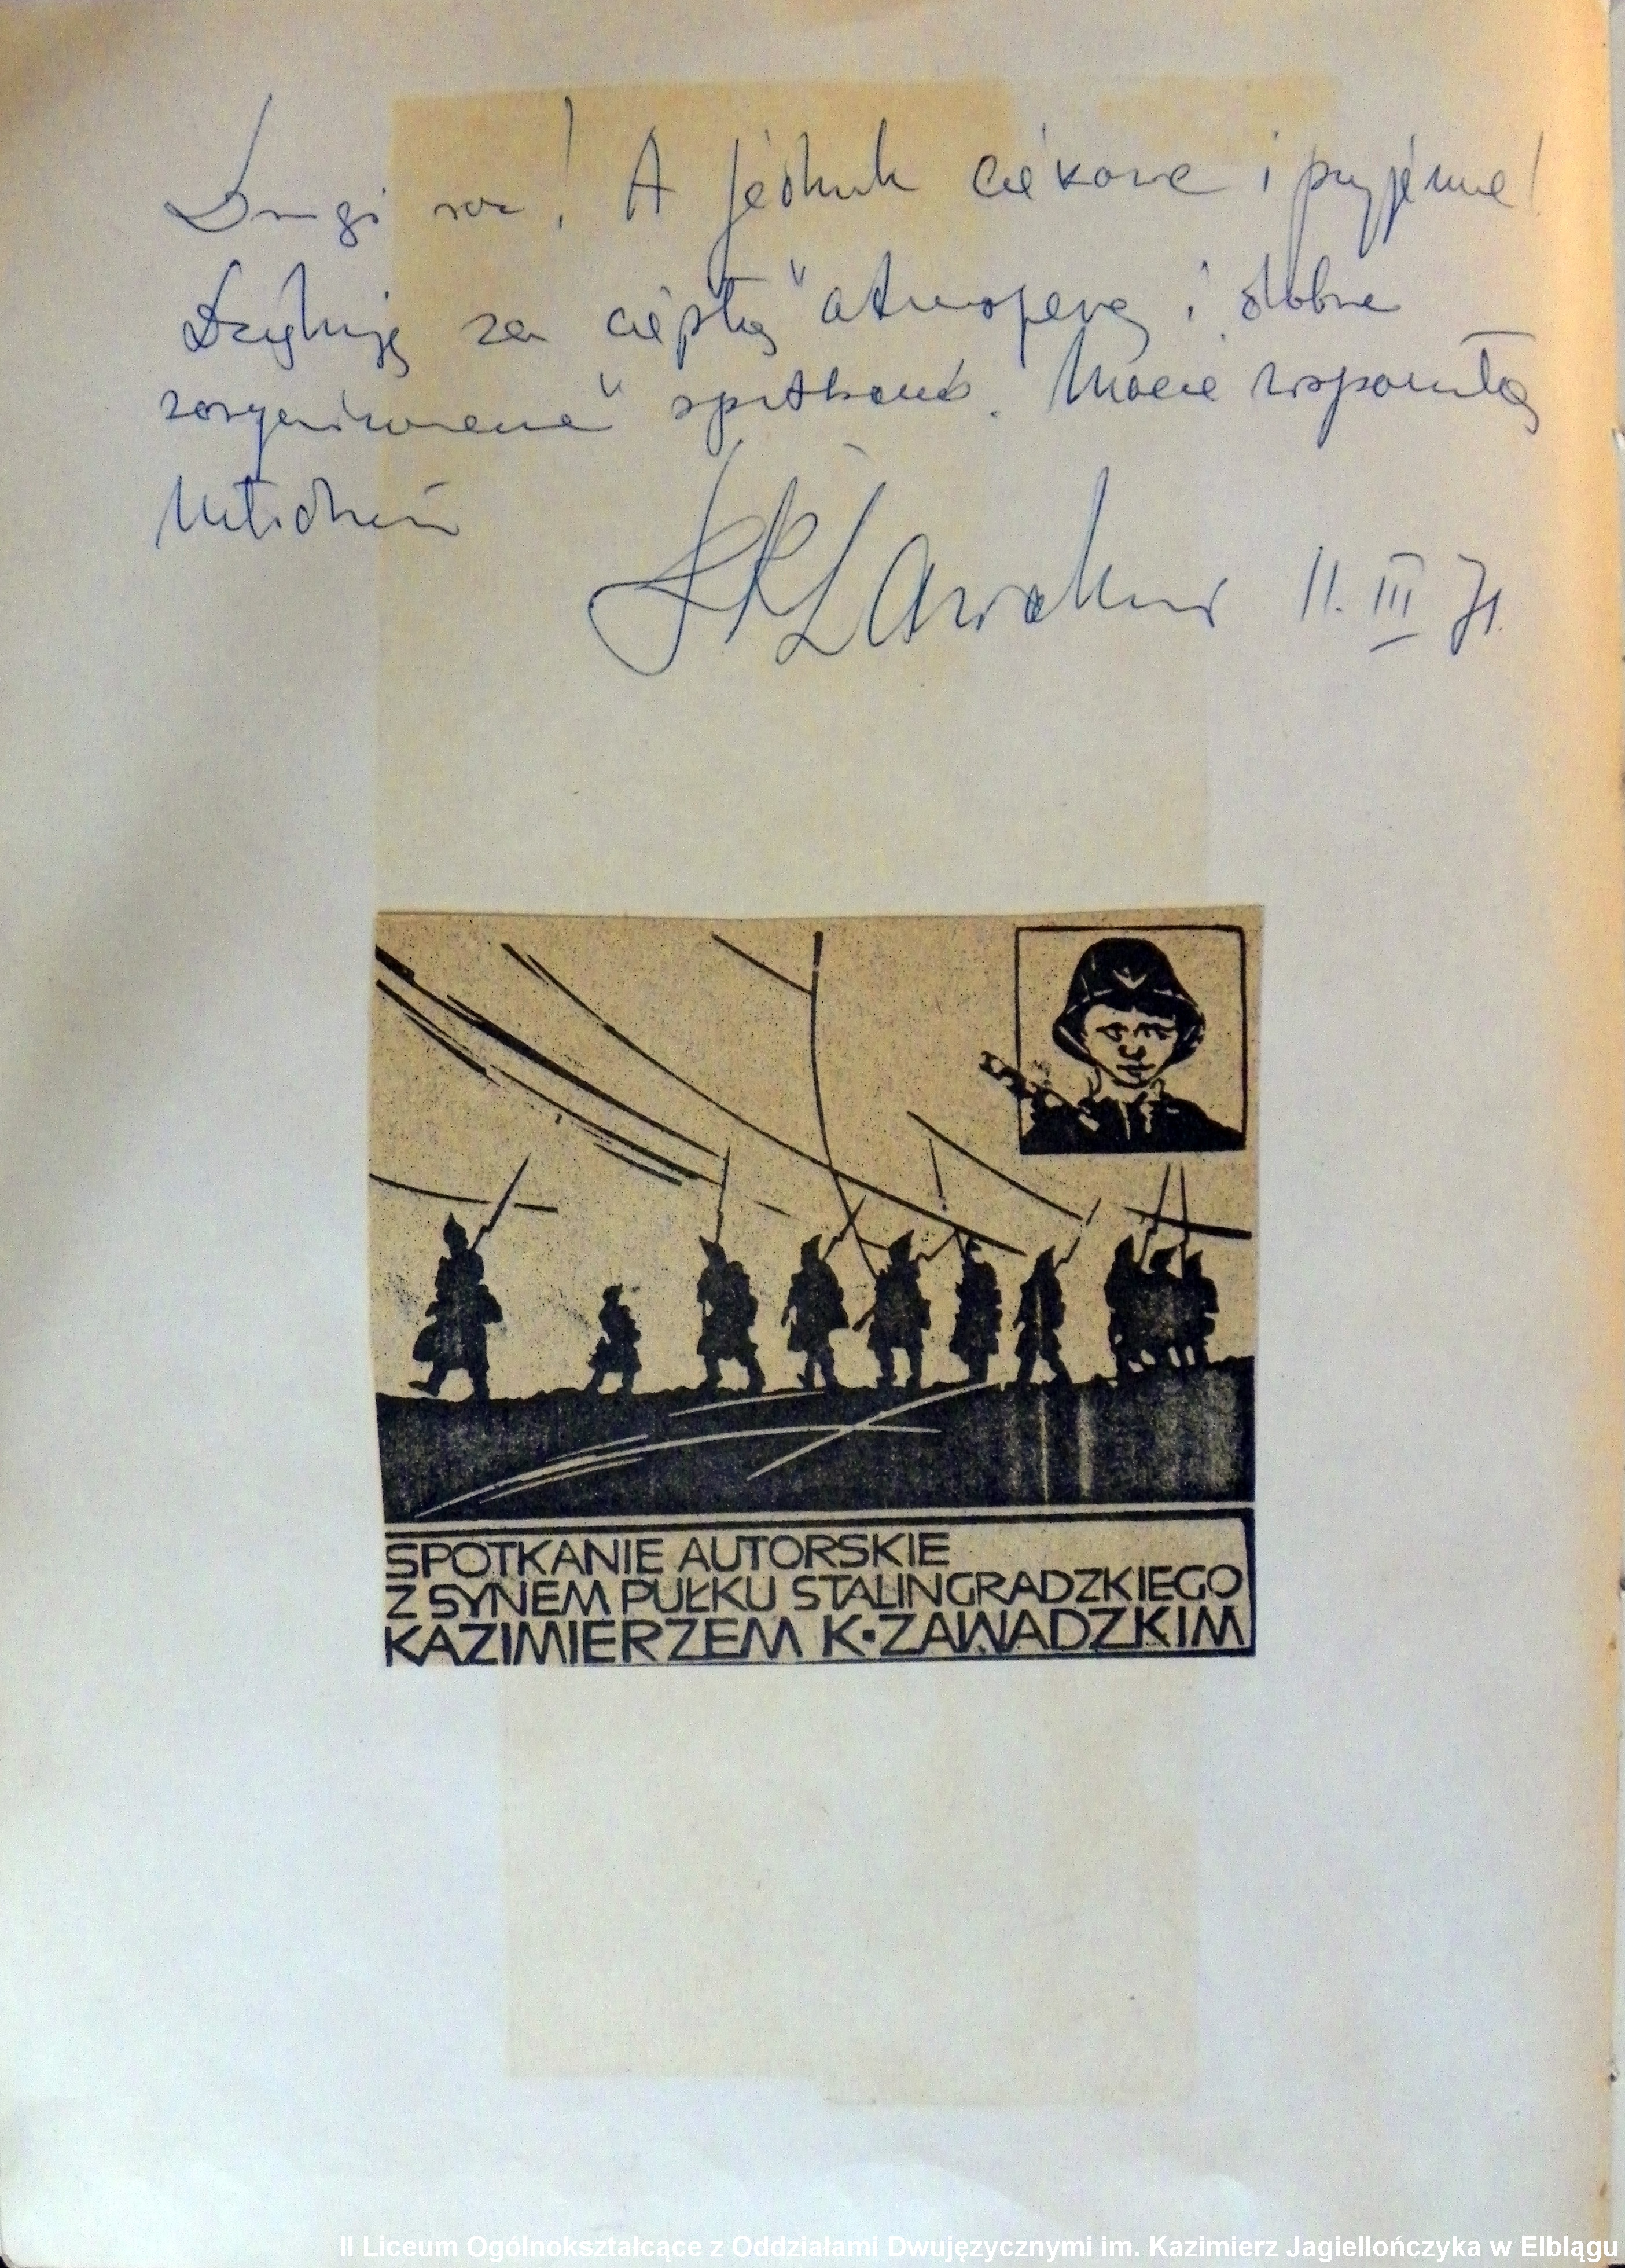 Drugi raz! A jednak ciekawe i przyjemne!
Dziękuję za ciepłą" atmosferę i dobrze
zorganizowane" spotkanie. Macie wspaniałą
młodzież
KKZawadzki 11. III 71.
SPOTKANIE AUTORSKIE
Z SYNEM PUŁKU STALINGRADZKIEGO
KAZIMIERZEM K·ZAWADZKIM
II Liceum Ogólnokształcące z Oddziałami Dwujęzycznymi im. Kazimierz Jagiellończyka w Elblągu